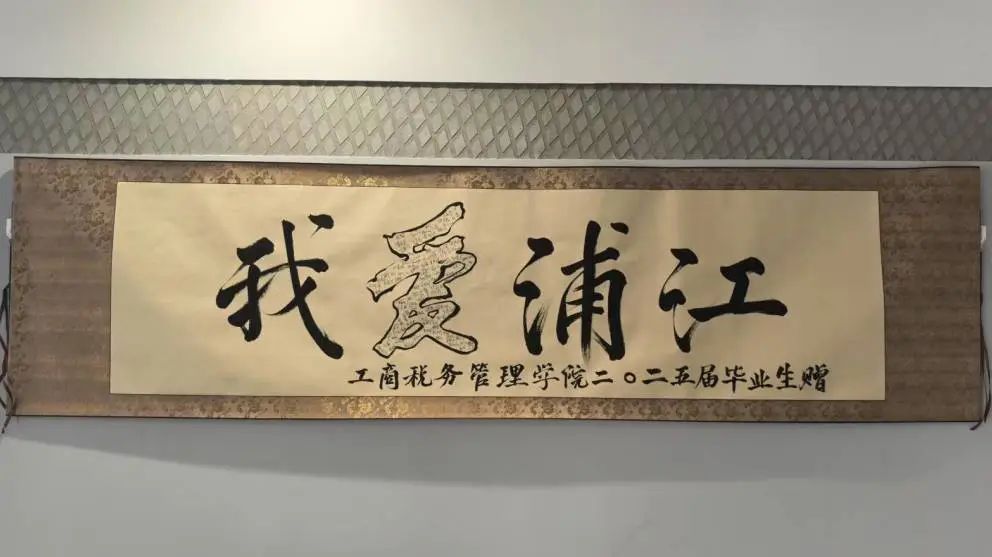 我爱浦江
工商税务管理学院二〇二五届毕业生赠